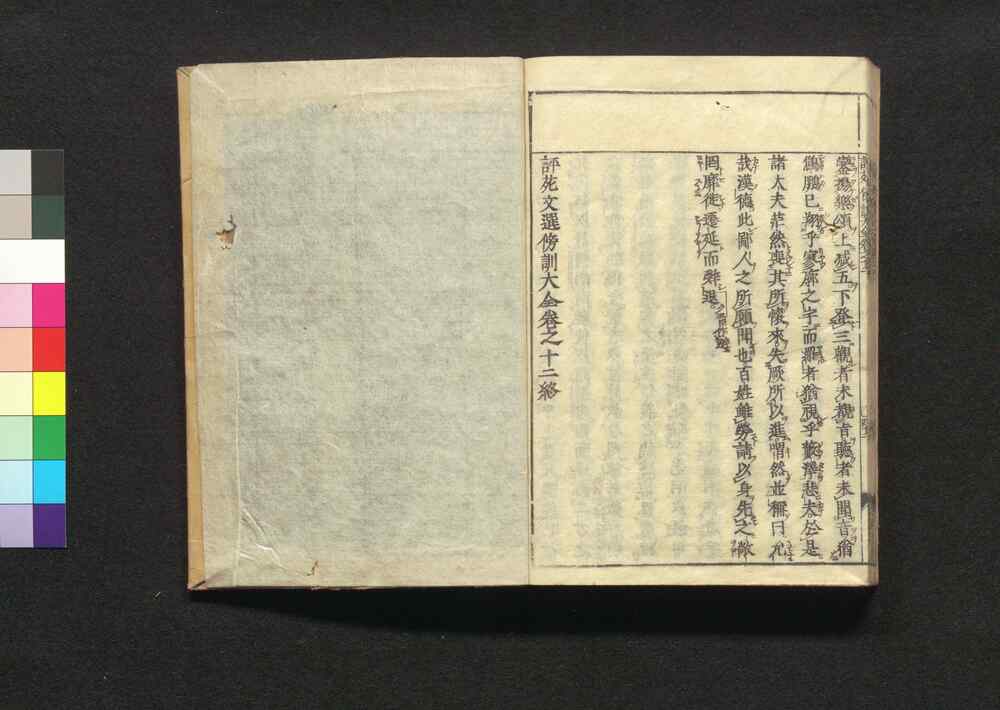 鑾揚樂頌上减五下登三觀者未覩旨聽者未聞音猶
鷦鵬已翔乎寥廓之宇而羅者猶視乎藪澤悲夫於是
諸大夫茫然喪其所懷來失厥所以進喟然並稱曰允
哉漢德此鄙人之所願聞也百姓雖勞請以身先之敞
罔靡徙遷延而辭退
評苑文選傍訓大全卷之十二終